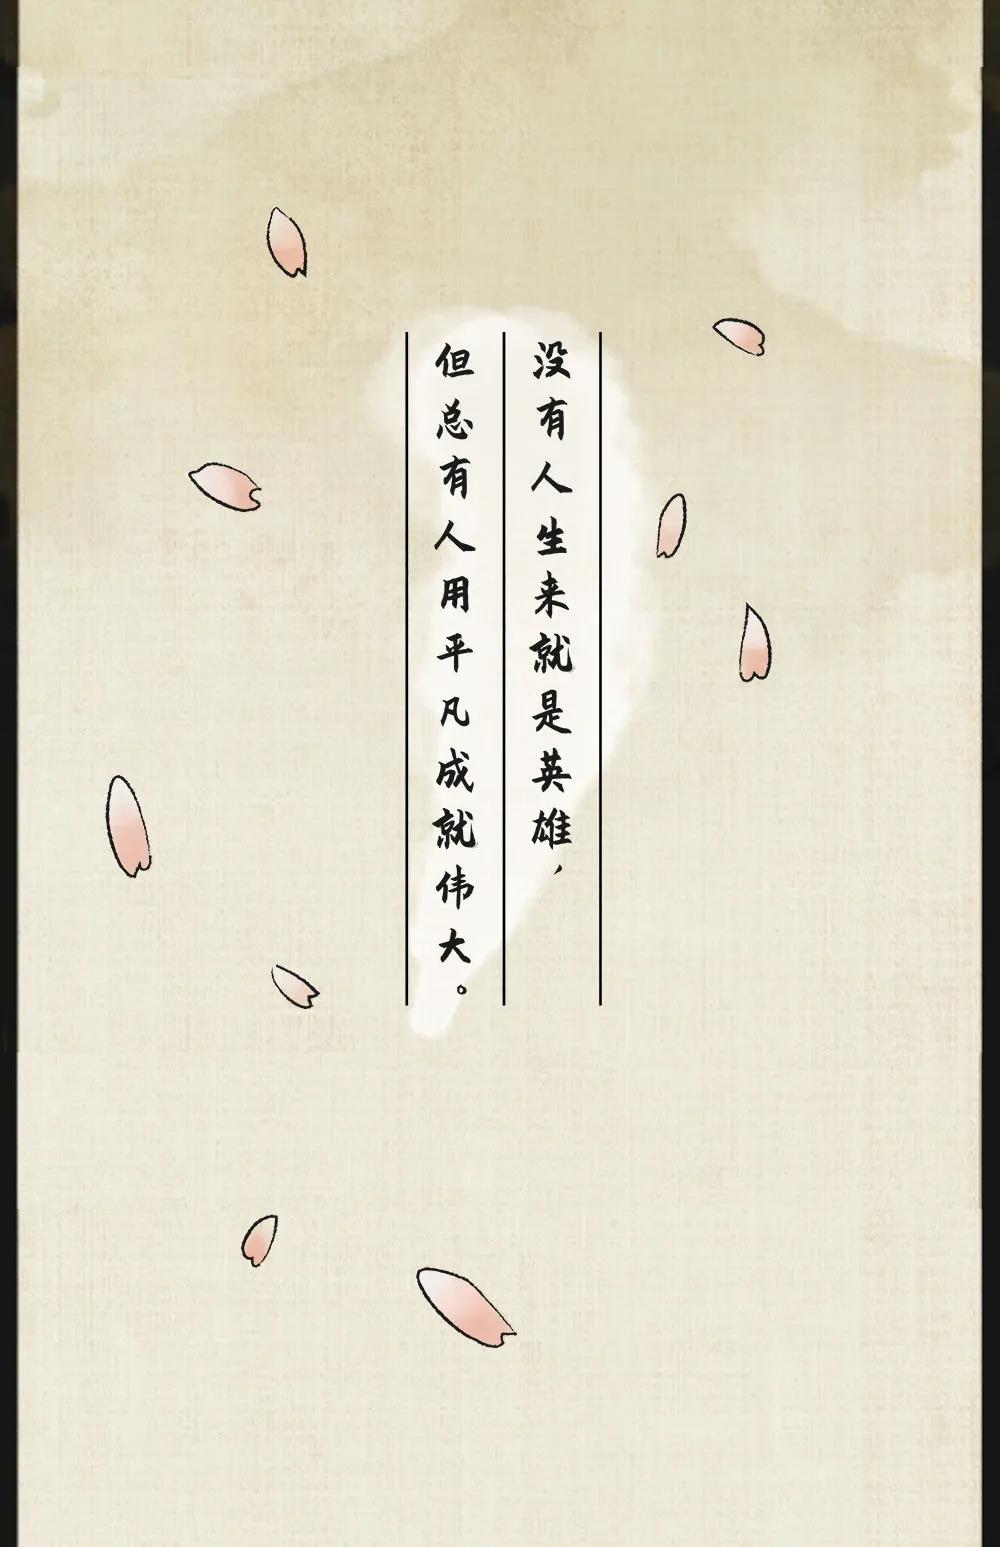 没有人生来就是英雄，
但总有人用平凡成就伟大。